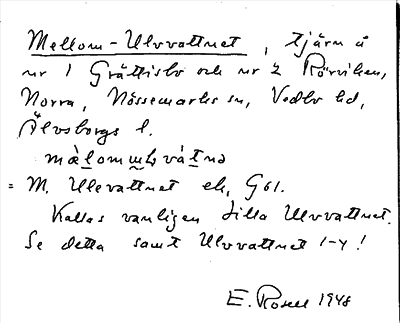 Mellom-Ulvvattnet, tjärn å
nr 1 Grättisbo och nr 2 Rörviken,
Norra, Nössemarks sn, Vedbo hd,
Älvsborgs l.
= M. Ulevattnet ek, G61.
Kallas vanligen Lilla Ulvvattnet.
Se detta samt Ulvvattnet 1-4!
E. Rosell 1948